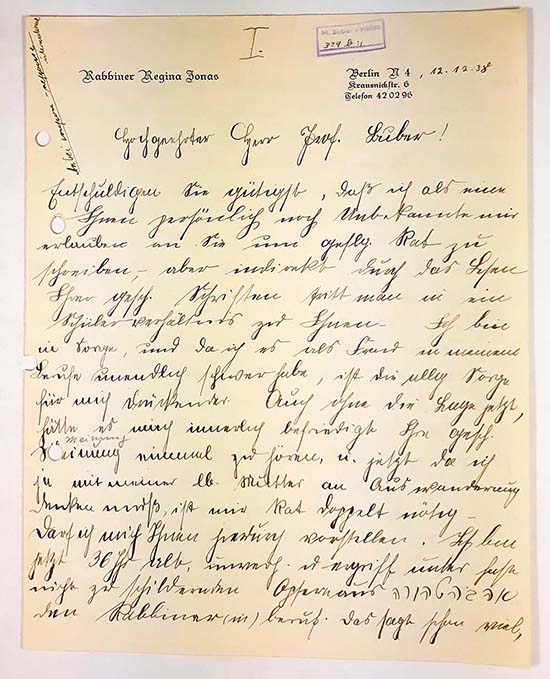 I.
M. Buber Archiv
329 b:1
Rabbiner Regina Jonas
Berlin N 4, 12.12.38
Krausnickstr. 6
Telefon 42 02 96
Hochgeehrter Herr Prof. Buber!
Entschuldigen Sie gütigst, daß ich als eine
Ihnen persönlich noch Unbekannte mir
erlauben an Sie um geflg. Rat zu
schreiben, – aber indirekt durch das Lesen
Ihrer gesch. Schriften tritt man in ein
Schülerverhältnis zu Ihnen – Ich bin
in Sorge, und da ich es als Frau in meinem
Berufe unendlich schwer habe, ist die allg. Sorge
für mich drückender. Auch ohne die Lage jetzt,
hätte es mich innerlich befriedigt Ihre gesch.
Meinung
Meinung einmal zu hören, u. jetzt da ich
ja mit meiner lb. Mutter an Auswanderung
denken muß, ist mir Rat doppelt nötig –
Darf ich mich Ihnen hiedurch vorstellen. Ich bin
jetzt 36 Jhr alt, unverh. u ergriff unter fast
nicht zu schildernden Opfern aus
den Rabbiner(in)beruf. Das sagt schon viel,